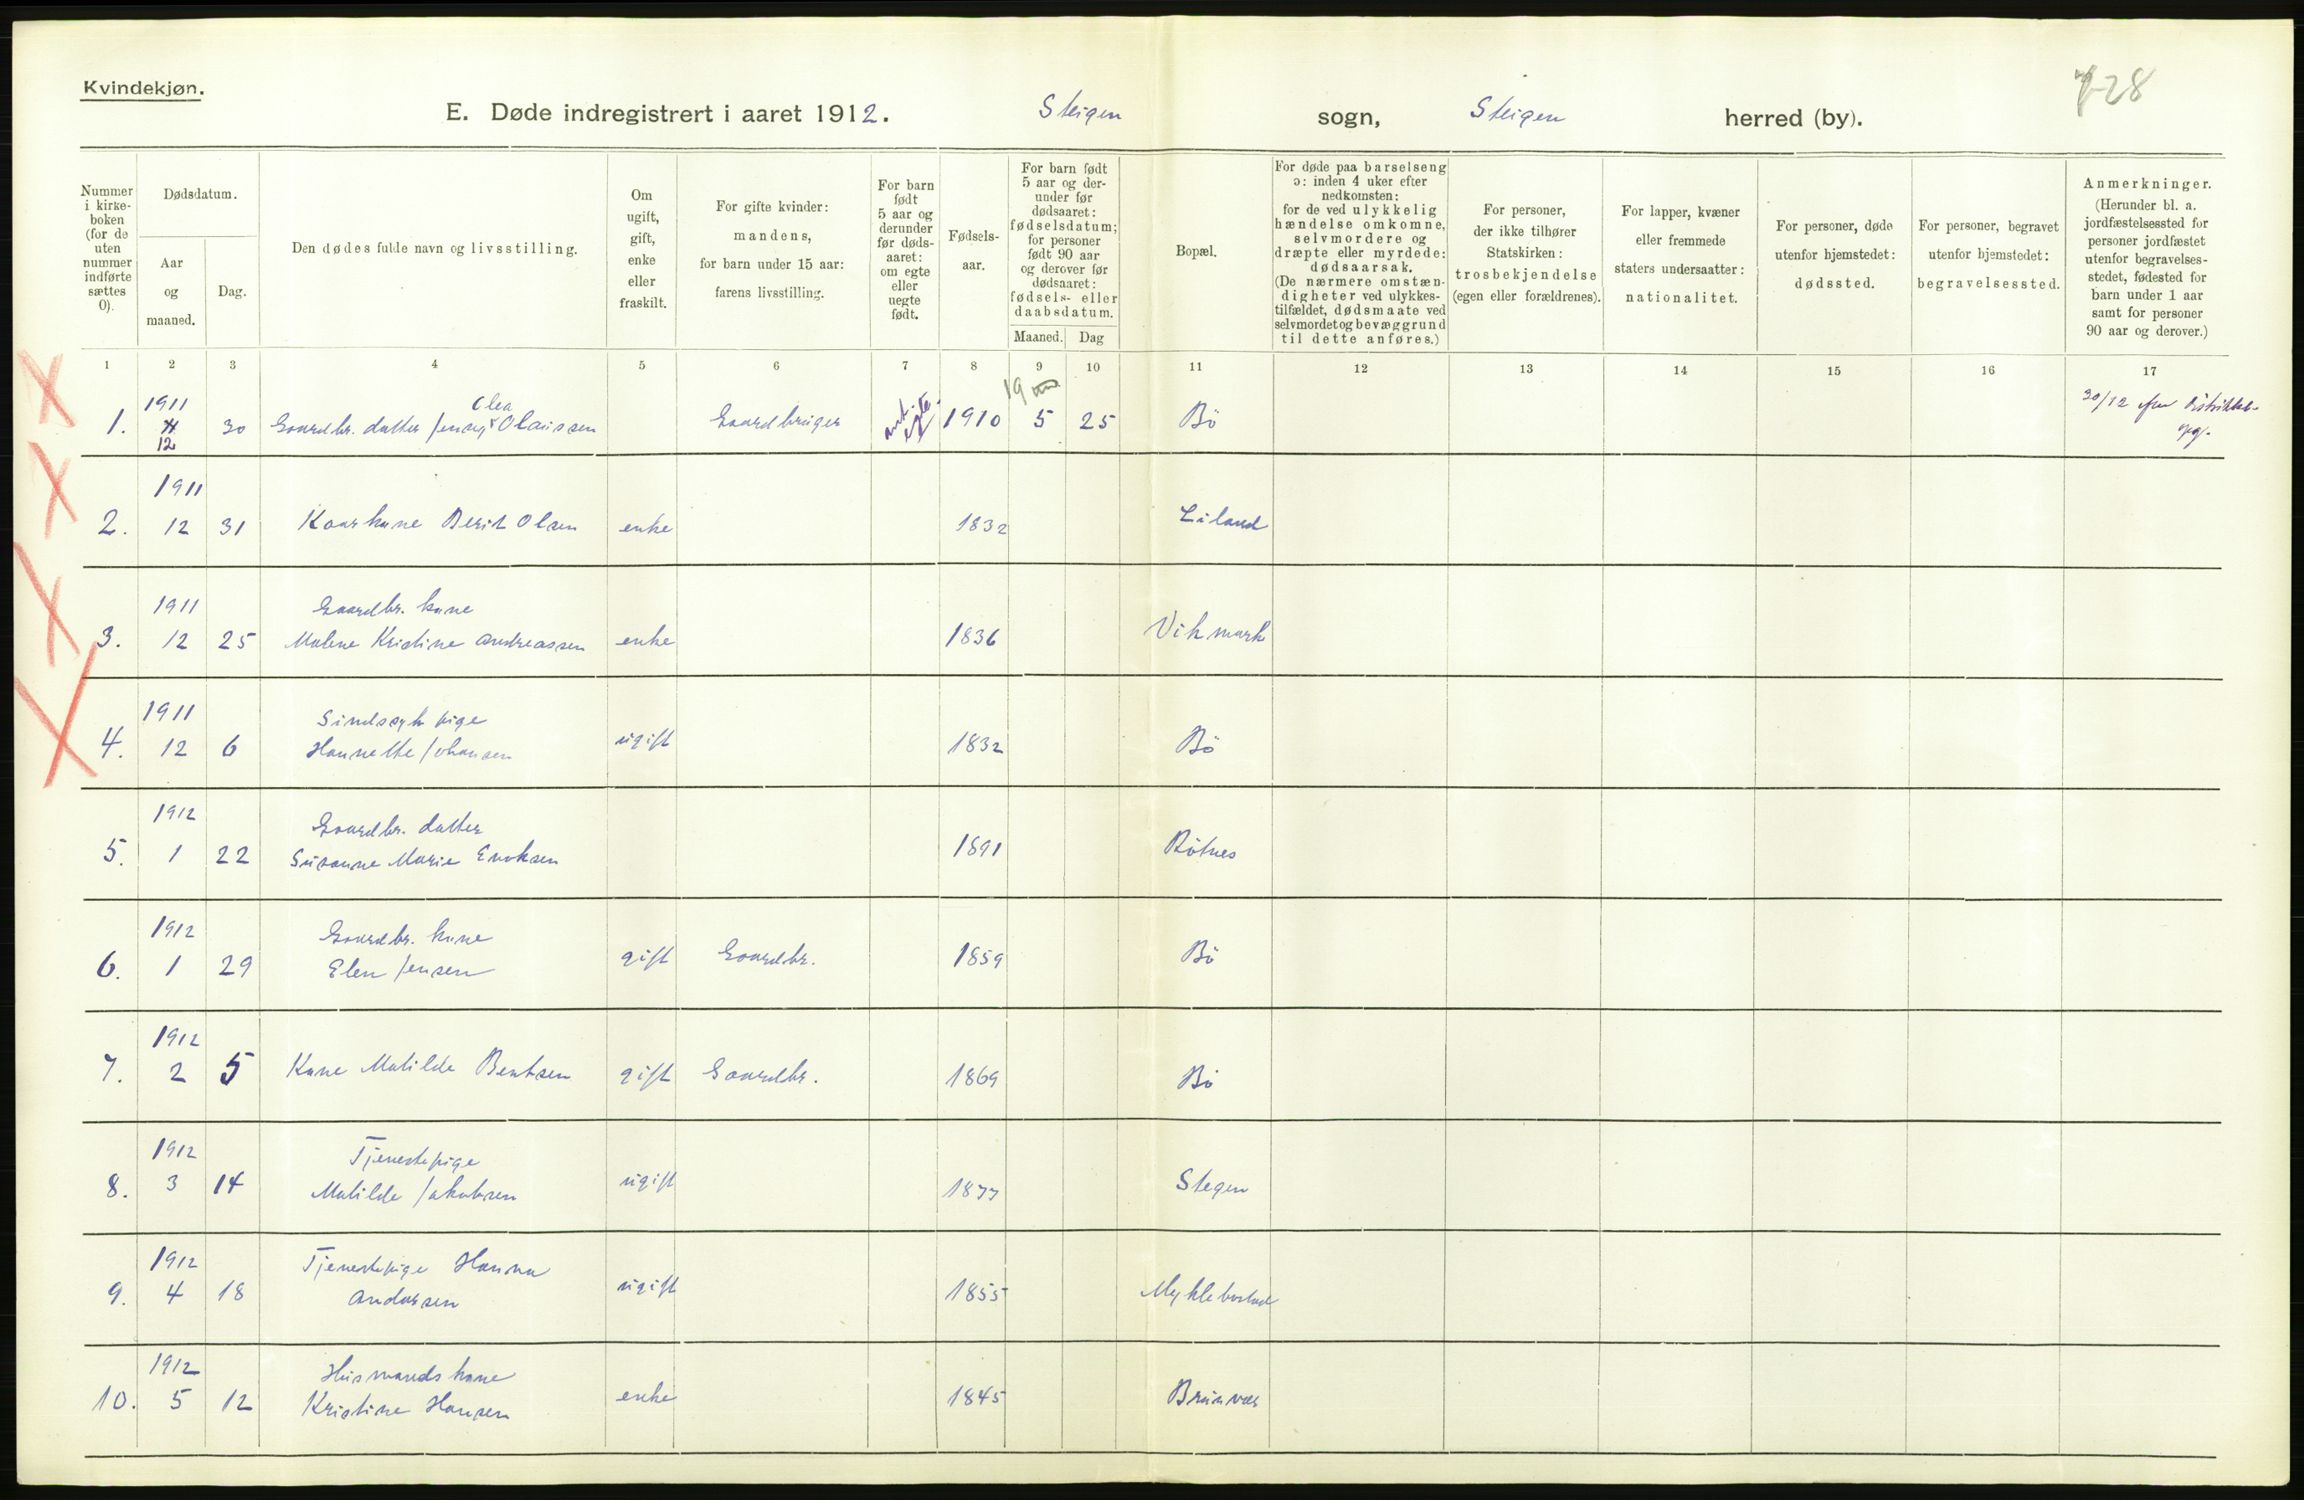 Kvindekjøn.
E. Døde indregistrert i aaret 1912. Steigen sogn, Steigen herred (by).
728
Nummer i kirkeboken (for de uten nummer indførte sættes 0).
Dødsdatum.
Aar og maaned.
Dag.
Den dødes fulde navn og livsstilling.
Om ugift, gift, enke eller fraskilt.
For gifte kvinder: mandens, for barn under 15 aar: farens livsstilling.
For barn født 5 aar og derunder før dødsaaret: om egte eller uegte født.
Fødselsaar.
For barn født 5 aar og derunder før dødsaaret: fødselsdatum; for personer født 90 aar og derover før dødsaaret: fødsels- eller daabsdatum.
Maaned. Dag
Bopæl.
For døde paa barselseng ɔ: inden 4 uker efter nedkomsten: for de ved ulykkelig hændelse omkomne, selvmordere og dræpte eller myrdede: dødsaarsak. (De nærmere omstændigheter ved ulykkestilfældet, dødsmaate ved selvmordet og bevæggrund til dette anføres.)
For personer, der ikke tilhører Statskirken: trosbekjendelse (egen eller forældrenes).
For lapper, kvæner eller fremmede staters undersaatter: nationalitet.
For personer, døde utenfor hjemstedet: dødssted.
For personer, begravet utenfor hjemstedet: begravelsessted.
Anmerkninger. (Herunder bl. a. jordfæstelsessted for personer jordfæstet utenfor begravelsesstedet, fødested for barn under 1 aar samt for personer 90 aar og derover.)
1 2 3 4 5 6 7 8 9 10 11 12 13 14 15 16 17
1. 1911 12 30 Gaardbr. datter Jensy Olea Olaussen Gaardbruger egte 1910 19 5 25 Bö 30/12
2. 1911 12 31 Kaarkone Berit Olsen enke 1832 Liland
3. 1911 12 25 Gaardbr. kone
Malene Kristine Andreassen enke 1836 Vikmark
4. 1911 12 6 Sindssyk pige
Hannette Johansen ugift 1832 Bö
5. 1912 1 22 Gaardbr. datter
Susanne Marie Enoksen 1891 Bötnes
6. 1912 1 29 Gaardbr. kone
Elen Jensen gift Gaardbr. 1859 Bö
7. 1912 2 5 Kone Matilde Bentsen gift Gaardbr. 1869 Bö
8. 1912 3 14 Tjenestepige
Matilde Jakobsen ugift 1877 Stegen
9. 1912 4 18 Tjenestepige Hanna
Andersen ugift 1855 Myklebostad
10. 1912 5 12 Husmands kone
Kristine Hansen enke 1845 Brunvær